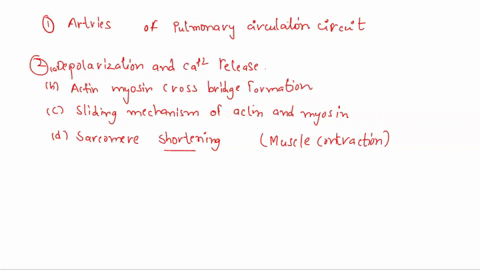 ① Artries of Pulmonary circulation circuit
② (a) Depolarization and Ca+2 release.
(b) Actin myosin cross bridge formation
(c) Sliding mechanism of actin and myosin
(d) Sarcomere shortening (Muscle contraction)